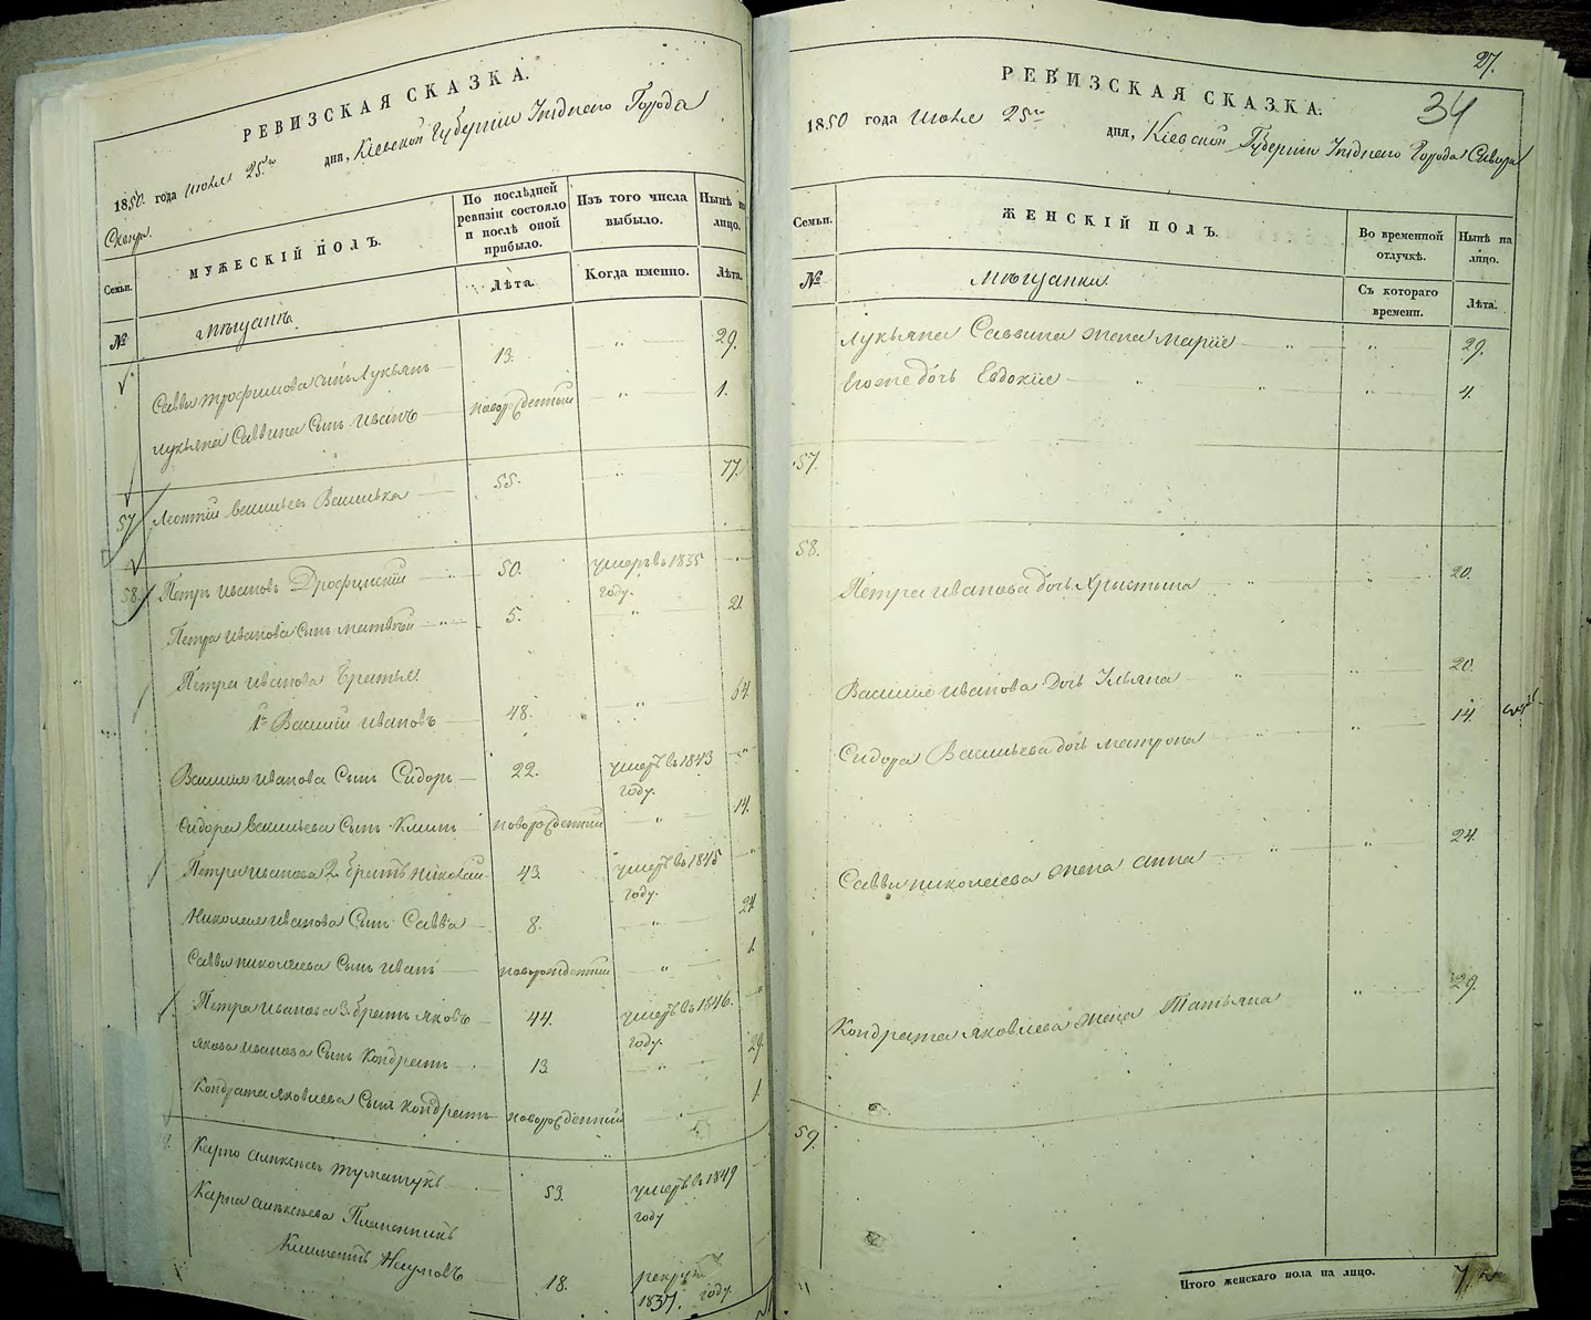 РЕВИЗСКАЯ СКАЗКА.
1850. года Июля 25го дня, Кіевской Губерніи Уѣзднаго Города
Сквира.
Семьи.
МУЖЕСКІЙ ПОЛЪ.
По послѣдней ревизіи состояло и послѣ оной прибыло.
Изъ того числа выбыло.
Нынѣ на лицо.
Лѣта.
Когда именно.
Лѣта.
№
Мѣщанъ.
Саввы Трофимова сынъ Лукьянъ 13. " 29.
Лукьяна Саввина Сынъ Иванъ новорожденный " 1.
57 Леонтій Васильевъ 55. " 77.
58. Петръ Ивановъ 50. умеръ въ 1835 году. "
Петра Иванова Сынъ Матвѣй " 5. " 21.
Петра Иванова Братья
1й Василій Ивановъ 48. " 64.
Василія Иванова Сынъ Сидоръ 22. умеръ въ 1843 году. "
Сидора Васильева Сынъ Климъ новорожденный " 14.
Петра Иванова 2. братъ Николай 43. умеръ въ 1845 году. "
Николая Иванова Сынъ Савва 8. " 24.
Саввы Николаева Сынъ Иванъ новорожденный " 1.
Петра Иванова 3. братъ Яковъ 44. умеръ въ 1846. году. "
Якова Иванова Сынъ Кондратъ 13. " 29.
Кондрата Яковлева Сынъ Кондратъ новорожденный 1.
Карпо Алексѣевъ Туманчукъ 53. умеръ въ 1849 году
Карпа Алексѣева Племянникъ
Климентъ Наумовъ 18. рекрут 1837. году.
27.
34
РЕВИЗСКАЯ СКАЗКА.
1850 года Июля 25го дня, Кіевской Губерніи Уѣзднаго Города Сквира
Семьи.
ЖЕНСКІЙ ПОЛЪ.
Во временной отлучкѣ.
Нынѣ на лицо.
№
Мѣщанки.
Съ котораго времени.
Лѣта.
Лукьяна Саввина жена Марія " " 29.
Его же дочь Евдокія " " " 4.
57.
58.
Петра Иванова дочь Христина " " 20.
Василія Иванова Дочь Ульяна " " 20.
Сидора Васильева дочь Матрона " 14.
Саввы Николаева жена Анна " " 24.
Кондрата Яковлева жена Татьяна " 29.
59.
Итого женскаго пола на лицо. 7